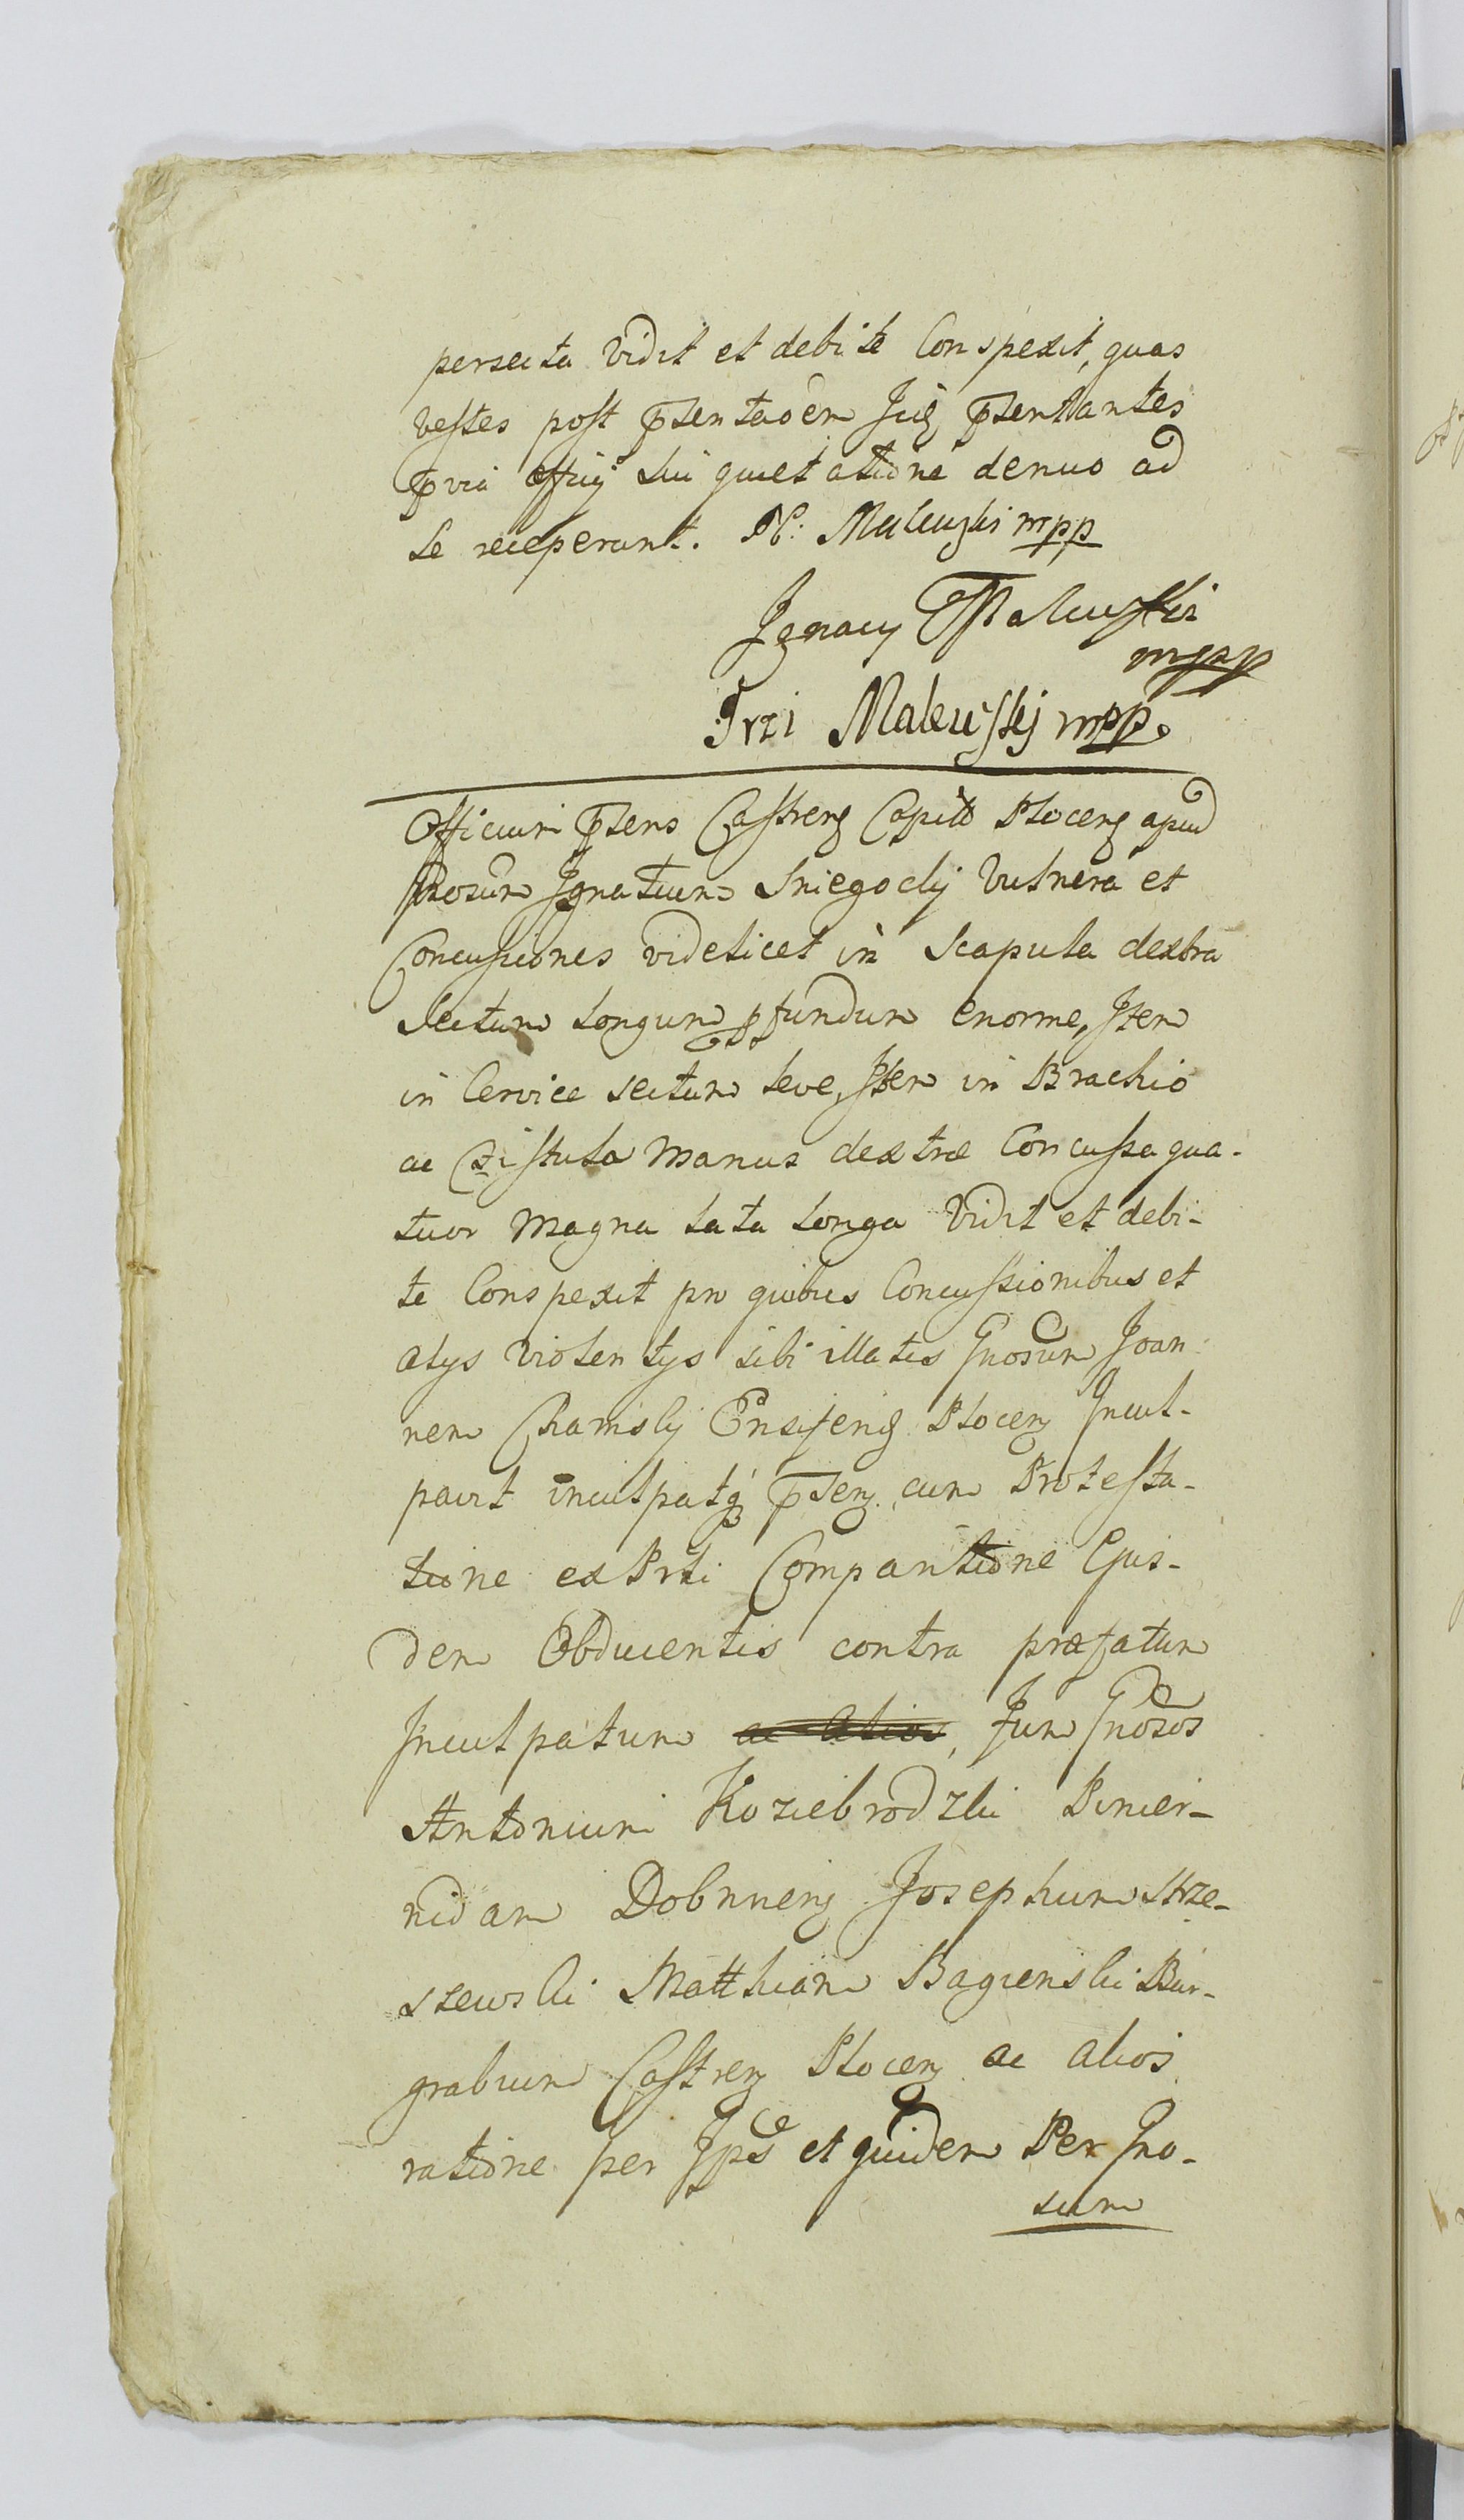 persecta vidit et debite Conspexit, quas
vestes post pñsentaoem Jug pñsentantes
pvia Officij sui quietatione denuo ad
se receperunt. N: Maleuski mpp
Jgnacy Maleuskii
mpp
Maleuskj mpp.
Officium pñsens Castrens Capitt Plocens apud
Gnosum Jgnatium Sniegocky Vulnera et
Concussiones videlicet in Scapula dextra
sectum longum pfundum enorme, Jtem
in Cervice sectum leve, Jtem in Brachio
ac Fistula manus dextræ Concussa qua-
tuor magna lata longa Vidit et debi-
te Conspexit pro quibus Concussionibus et
alys violentys sibi illatis Gnosum Joan
nem Chamsky Ensifens Plocens Jncul-
pavit inculpatq pñsens cum Protesta-
tione ex Prti Comparitione Ejus-
dem Obducentis contra præfatum
Jnculpatum ac Alios, tum Gnosos
Antonium Koziebrodzki Pincer-
nidam Dobrinens Josephum Strze-
szewski Matthiam Bagienski Bur-
grabium Castrens Plocens ac alios
ratione per Jpos et quidem Per Gno-
sum